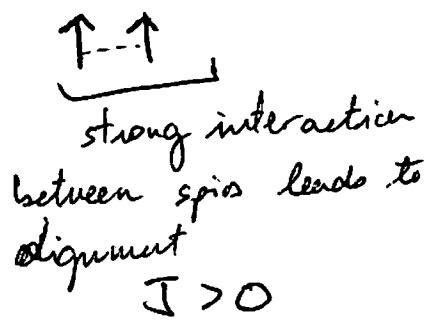 strong interaction
between spins leads to
alignment
J > 0